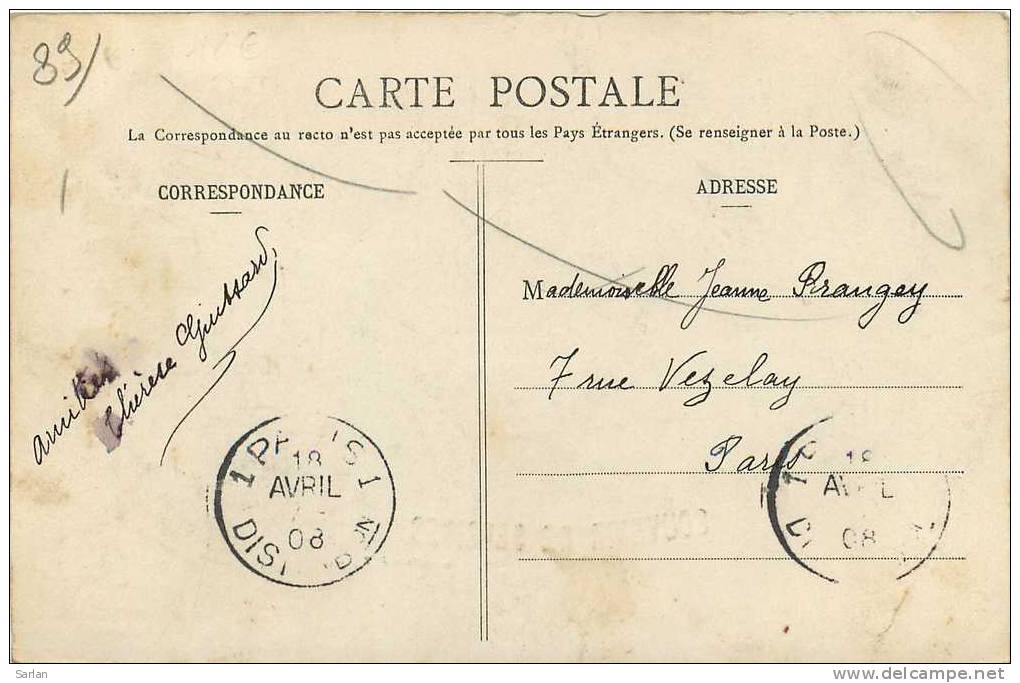 89
CARTE POSTALE
La Correspondance au recto n'est pas acceptée par tous les Pays Étrangers. (Se renseigner à la Poste.)
CORRESPONDANCE
amitiés
Thérèse
18
AVRIL
08
ADRESSE
Mademoiselle Jeanne Prangey
7 rue Vezelay
Paris
18
AVRIL
08
Sarlan
www.delcampe.net